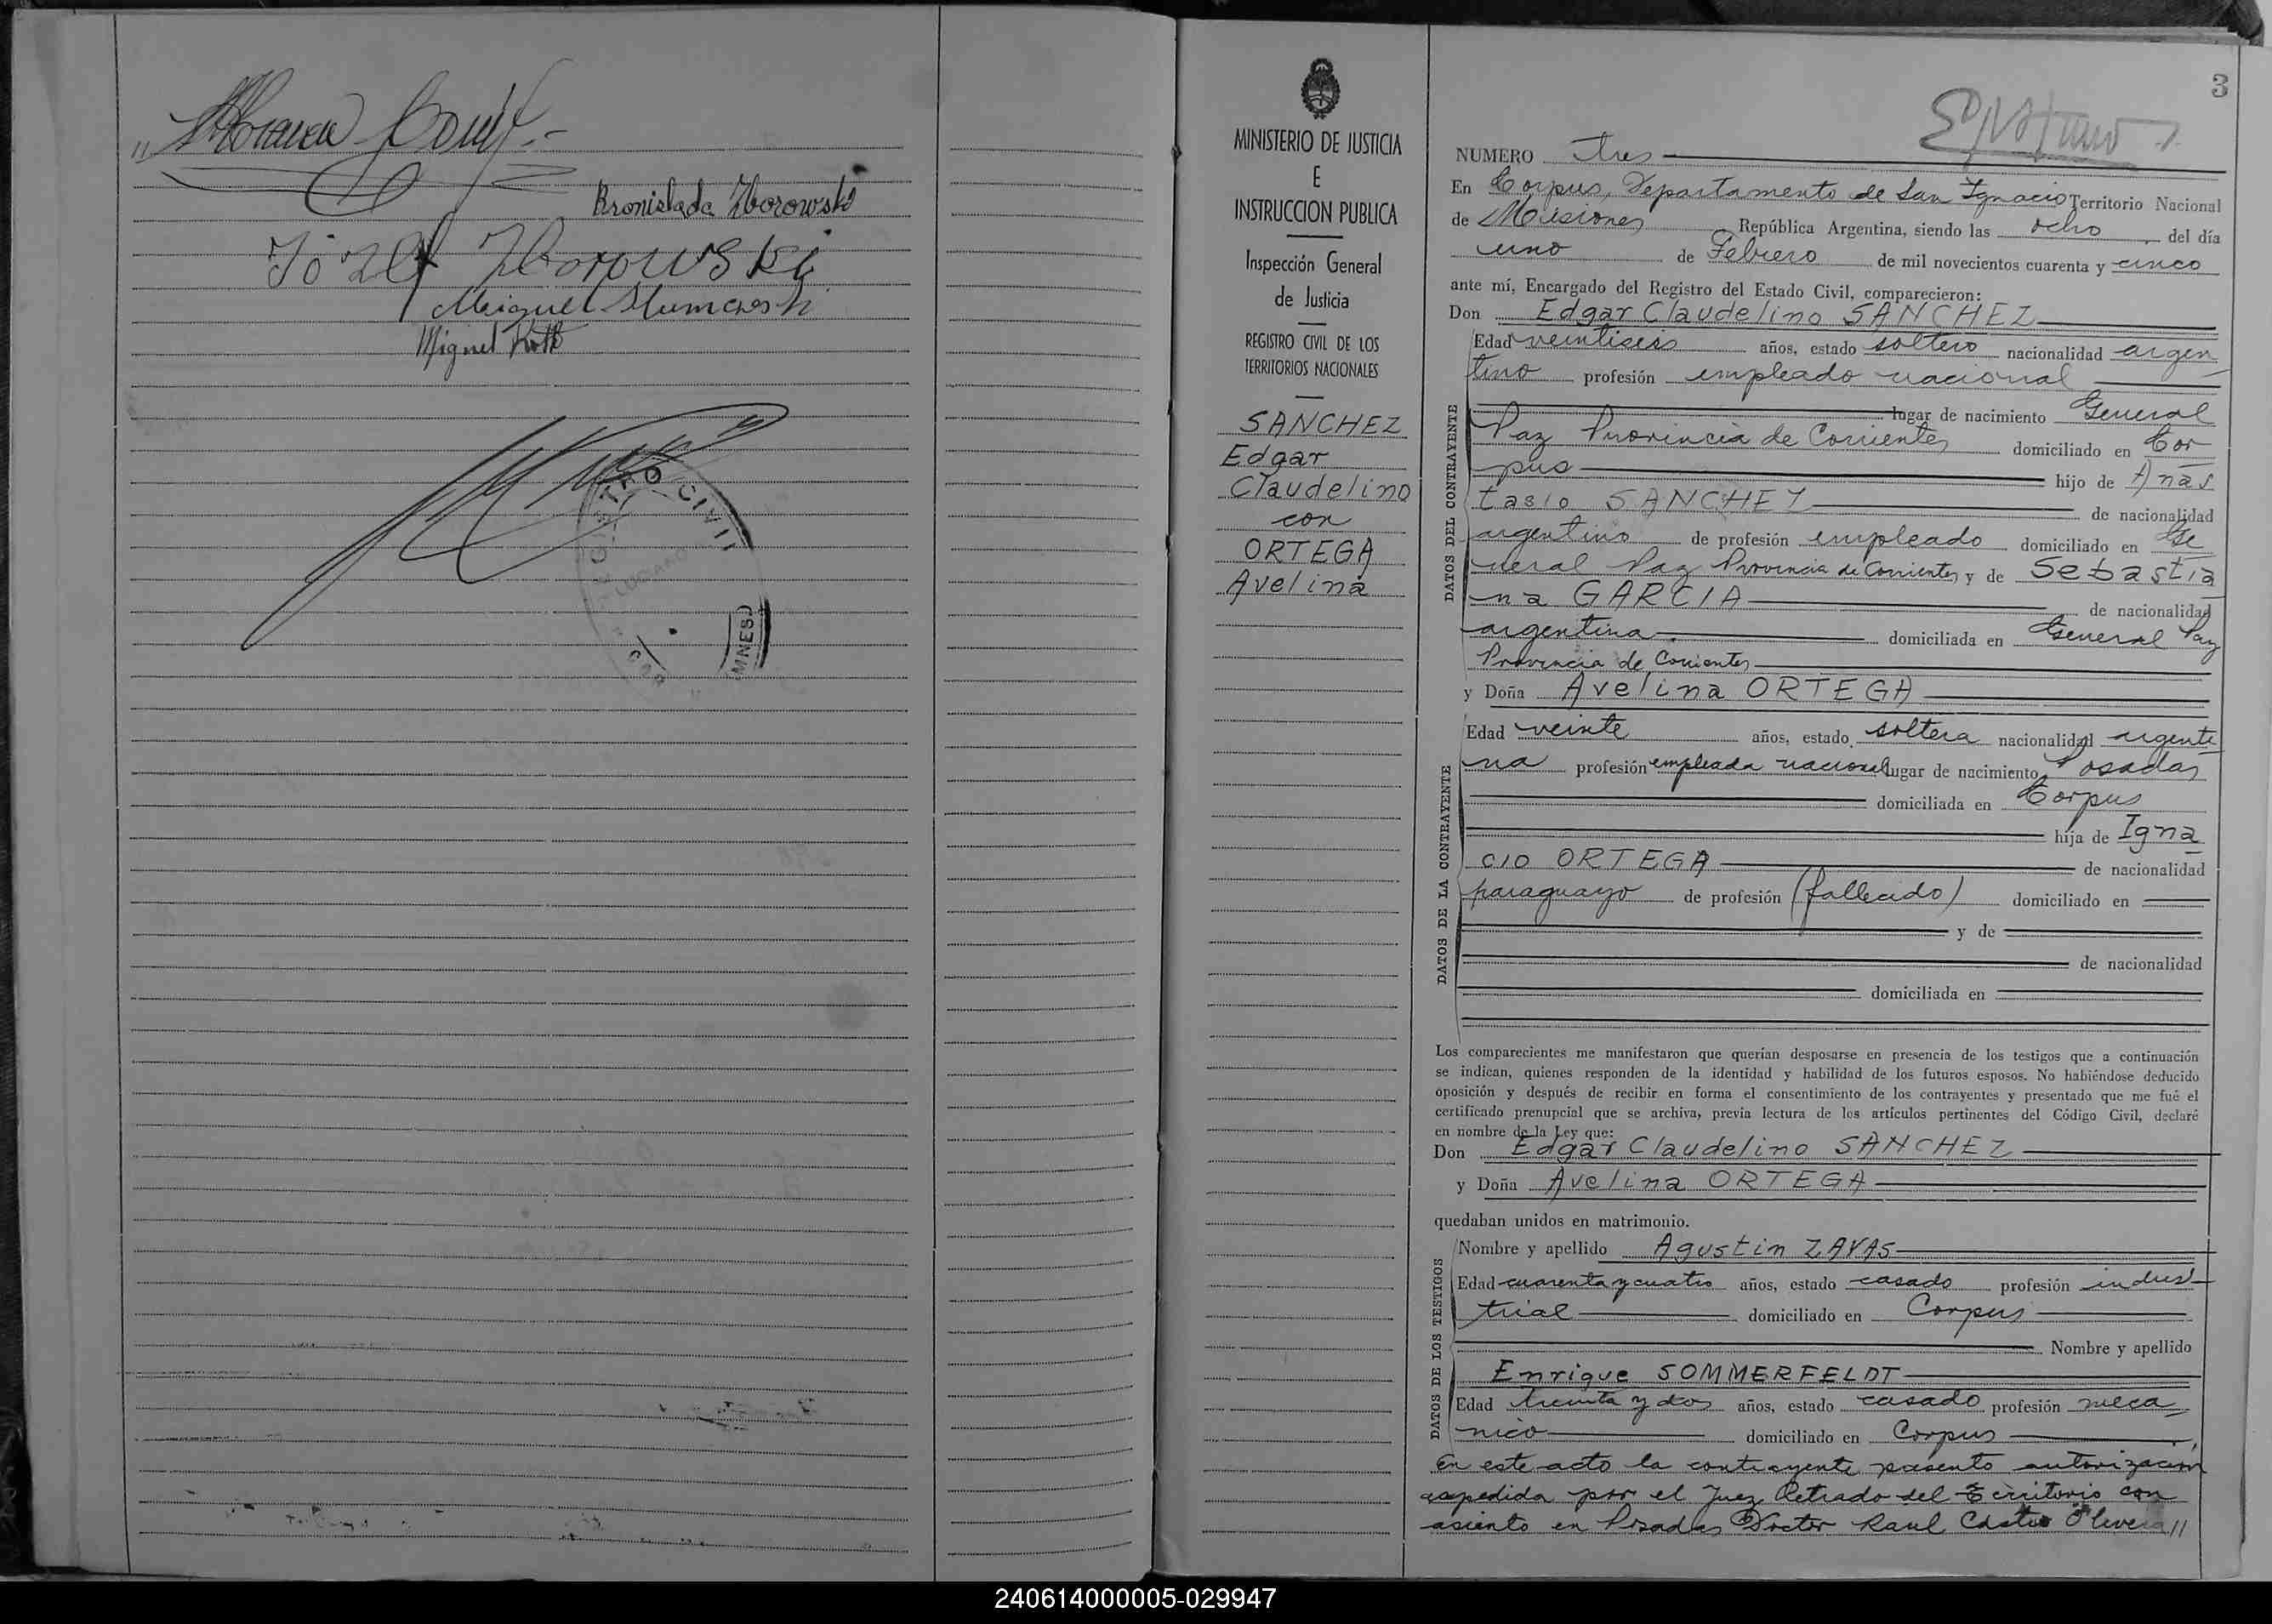 Bronislada Zborowski
Józef Zborowski
Miguel
Miguel Roth
REGISTRO CIVIL
MNES.)
MINISTERIO DE JUSTICIA
E
INSTRUCCION PUBLICA
Inspección General
de Justicia
REGISTRO CIVIL DE LOS
TERRITORIOS NACIONALES
SANCHEZ
Edgar
Claudelino
con
ORTEGA
Avelina
3
NUMERO tres
En Corpus, Departamento de San Ignacio Territorio Nacional
de Misiones República Argentina, siendo las ocho del día
uno de Febrero de mil novecientos cuarenta y cinco
ante mí, Encargado del Registro del Estado Civil, comparecieron:
Don Edgar Claudelino SANCHEZ
Edad veintiseis años, estado soltero nacionalidad argen
tino profesión empleado nacional
lugar de nacimiento General
Paz Provincia de Corrientes domiciliado en Cor
pus hijo de Anas
tasio SANCHEZ de nacionalidad
argentino de profesión empleado domiciliado en Ge
neral Paz Provincia de Corrientes y de Sebastia
na GARCIA de nacionalidad
argentina domiciliada en General Paz
Provincia de Corrientes
y Doña Avelina ORTEGA
Edad veinte años, estado soltera nacionalidad argenti
na profesión empleada nacional lugar de nacimiento Posadas
domiciliada en Corpus
hija de Igna
cio ORTEGA de nacionalidad
paraguayo de profesión (fallecido) domiciliado en
y de
de nacionalidad
domiciliada en
DATOS DEL CONTRAYENTE
DATOS DE LA CONTRAYENTE
Los comparecientes me manifestaron que querían desposarse en presencia de los testigos que a continuación
se indican, quienes responden de la identidad y habilidad de los futuros esposos. No habiéndose deducido
oposición y después de recibir en forma el consentimiento de los contrayentes y presentado que me fué el
certificado prenupcial que se archiva, previa lectura de los artículos pertinentes del Código Civil, declaré
en nombre de la Ley que:
Don Edgar Claudelino SANCHEZ
y Doña Avelina ORTEGA
quedaban unidos en matrimonio.
Nombre y apellido Agustin ZAYAS
Edad cuarenta y cuatro años, estado casado profesión indus
trial domiciliado en Corpus
Nombre y apellido
Enrique SOMMERFELDT
Edad treinta y dos años, estado casado profesión meca
nico domiciliado en Corpus
DATOS DE LOS TESTIGOS
En este acto la contrayente presentó autorización
expedida por el Juez Letrado del Territorio con
asiento en Posadas Doctor Raul Castro Olivera //
240614000005-029947